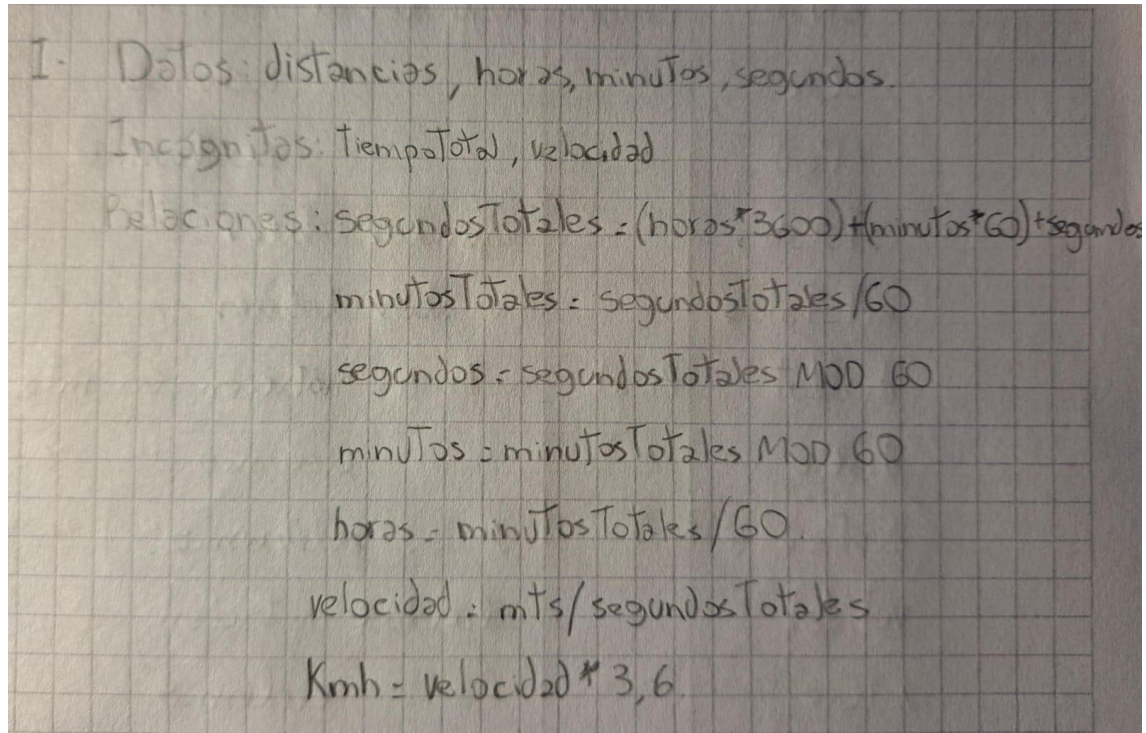 I. Datos: distancias, horas, minutos, segundos.
Incognitas: tiempoTotal, velocidad
Relaciones: segundosTotales = (horas*3600)+(minutos*60)+segundos
minutosTotales = segundosTotales/60
segundos = segundosTotales MOD 60
minutos = minutosTotales MOD 60
horas = minutosTotales/60.
velocidad = mts/segundosTotales
Kmh = velocidad * 3,6